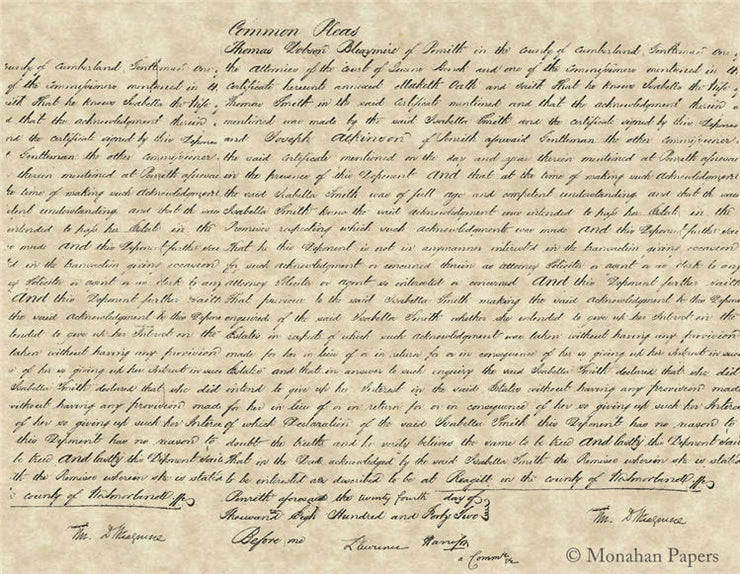 Common Pleas
Thomas Dobson Bleaymire of Penrith in the county of Cumberland Gentleman one
county of Cumberland Gentleman one the attornies of the court of Queens Bench and one of the Commissioners mentioned in
of the Commissioners mentioned in certificate hereunto annexed Maketh Oath and saith That he knows Isabella the Wife
saith That he knows Isabella the Wife Thomas Smith in the said certificate mentioned and that the acknowledgment therein
d that the acknowledgment therein mentioned was made by the said Isabella Smith and the certificate signed by this Deponent
nd the certificate signed by this Deponent and Joseph Atkinson of Penrith aforesaid Gentleman the other commissioner
Gentleman the other commissioner the said certificate mentioned on the day and year therein mentioned at Penrith aforesaid
therein mentioned at Penrith aforesaid in the presence of this Deponent And that at the time of making such Acknowledgment
he time of making such Acknowledgment the said Isabella Smith was of full age and competent understanding and that the said
tent understanding and that the said Isabella Smith knew the said acknowledgment was intended to pass her Estate in the
intended to pass her Estate in the Premises respecting which such acknowledgment was made And this Deponent further
made And this Deponent further That he this Deponent is not in any manner interested in the transaction giving occasion
d in the transaction giving occasion for such acknowledgment or concerned therein as attorney Solicitor or agent or as clerk to any
ey Solicitor or agent or as clerk to any attorney Solicitor or agent so interested or concerned And this Deponent further saith
And this Deponent further saith That previous to the said Isabella Smith making the said acknowledgment the Deponent
the said acknowledgment the Deponent enquired of the said Isabella Smith whether she intended to give up her Interest in the
tended to give up her Interest in the Estates in respect of which such acknowledgment was taken without having any provision
taken without having any provision made for her in lieu of or in return for or in consequence of her so giving up her Interest in such
of her so giving up her Interest in such Estates and that in answer to such enquiry the said Isabella Smith declared that she did
Isabella Smith declared that she did intend to give up her Interest in the said Estates without having any provision made
without having any provision made for her in lieu of or in return for or in consequence of her so giving up such her Interest
of her so giving up such her Interest of which Declaration of the said Isabella Smith this Deponent has no reason to
this Deponent has no reason to doubt the truth and he verily believes the same to be true And lastly this Deponent saith
to be true And lastly this Deponent saith That in the Deed acknowledged by the said Isabella Smith the Premises wherein she is stated
th the Premises wherein she is stated to be interested are described to be at Reagill in the county of Westmorland
county of Westmorland Penrith aforesaid the twenty fourth day of
Thousand Eight Hundred and Forty Two
Before me Lawrence Harrison
a Commr
© Monahan Papers